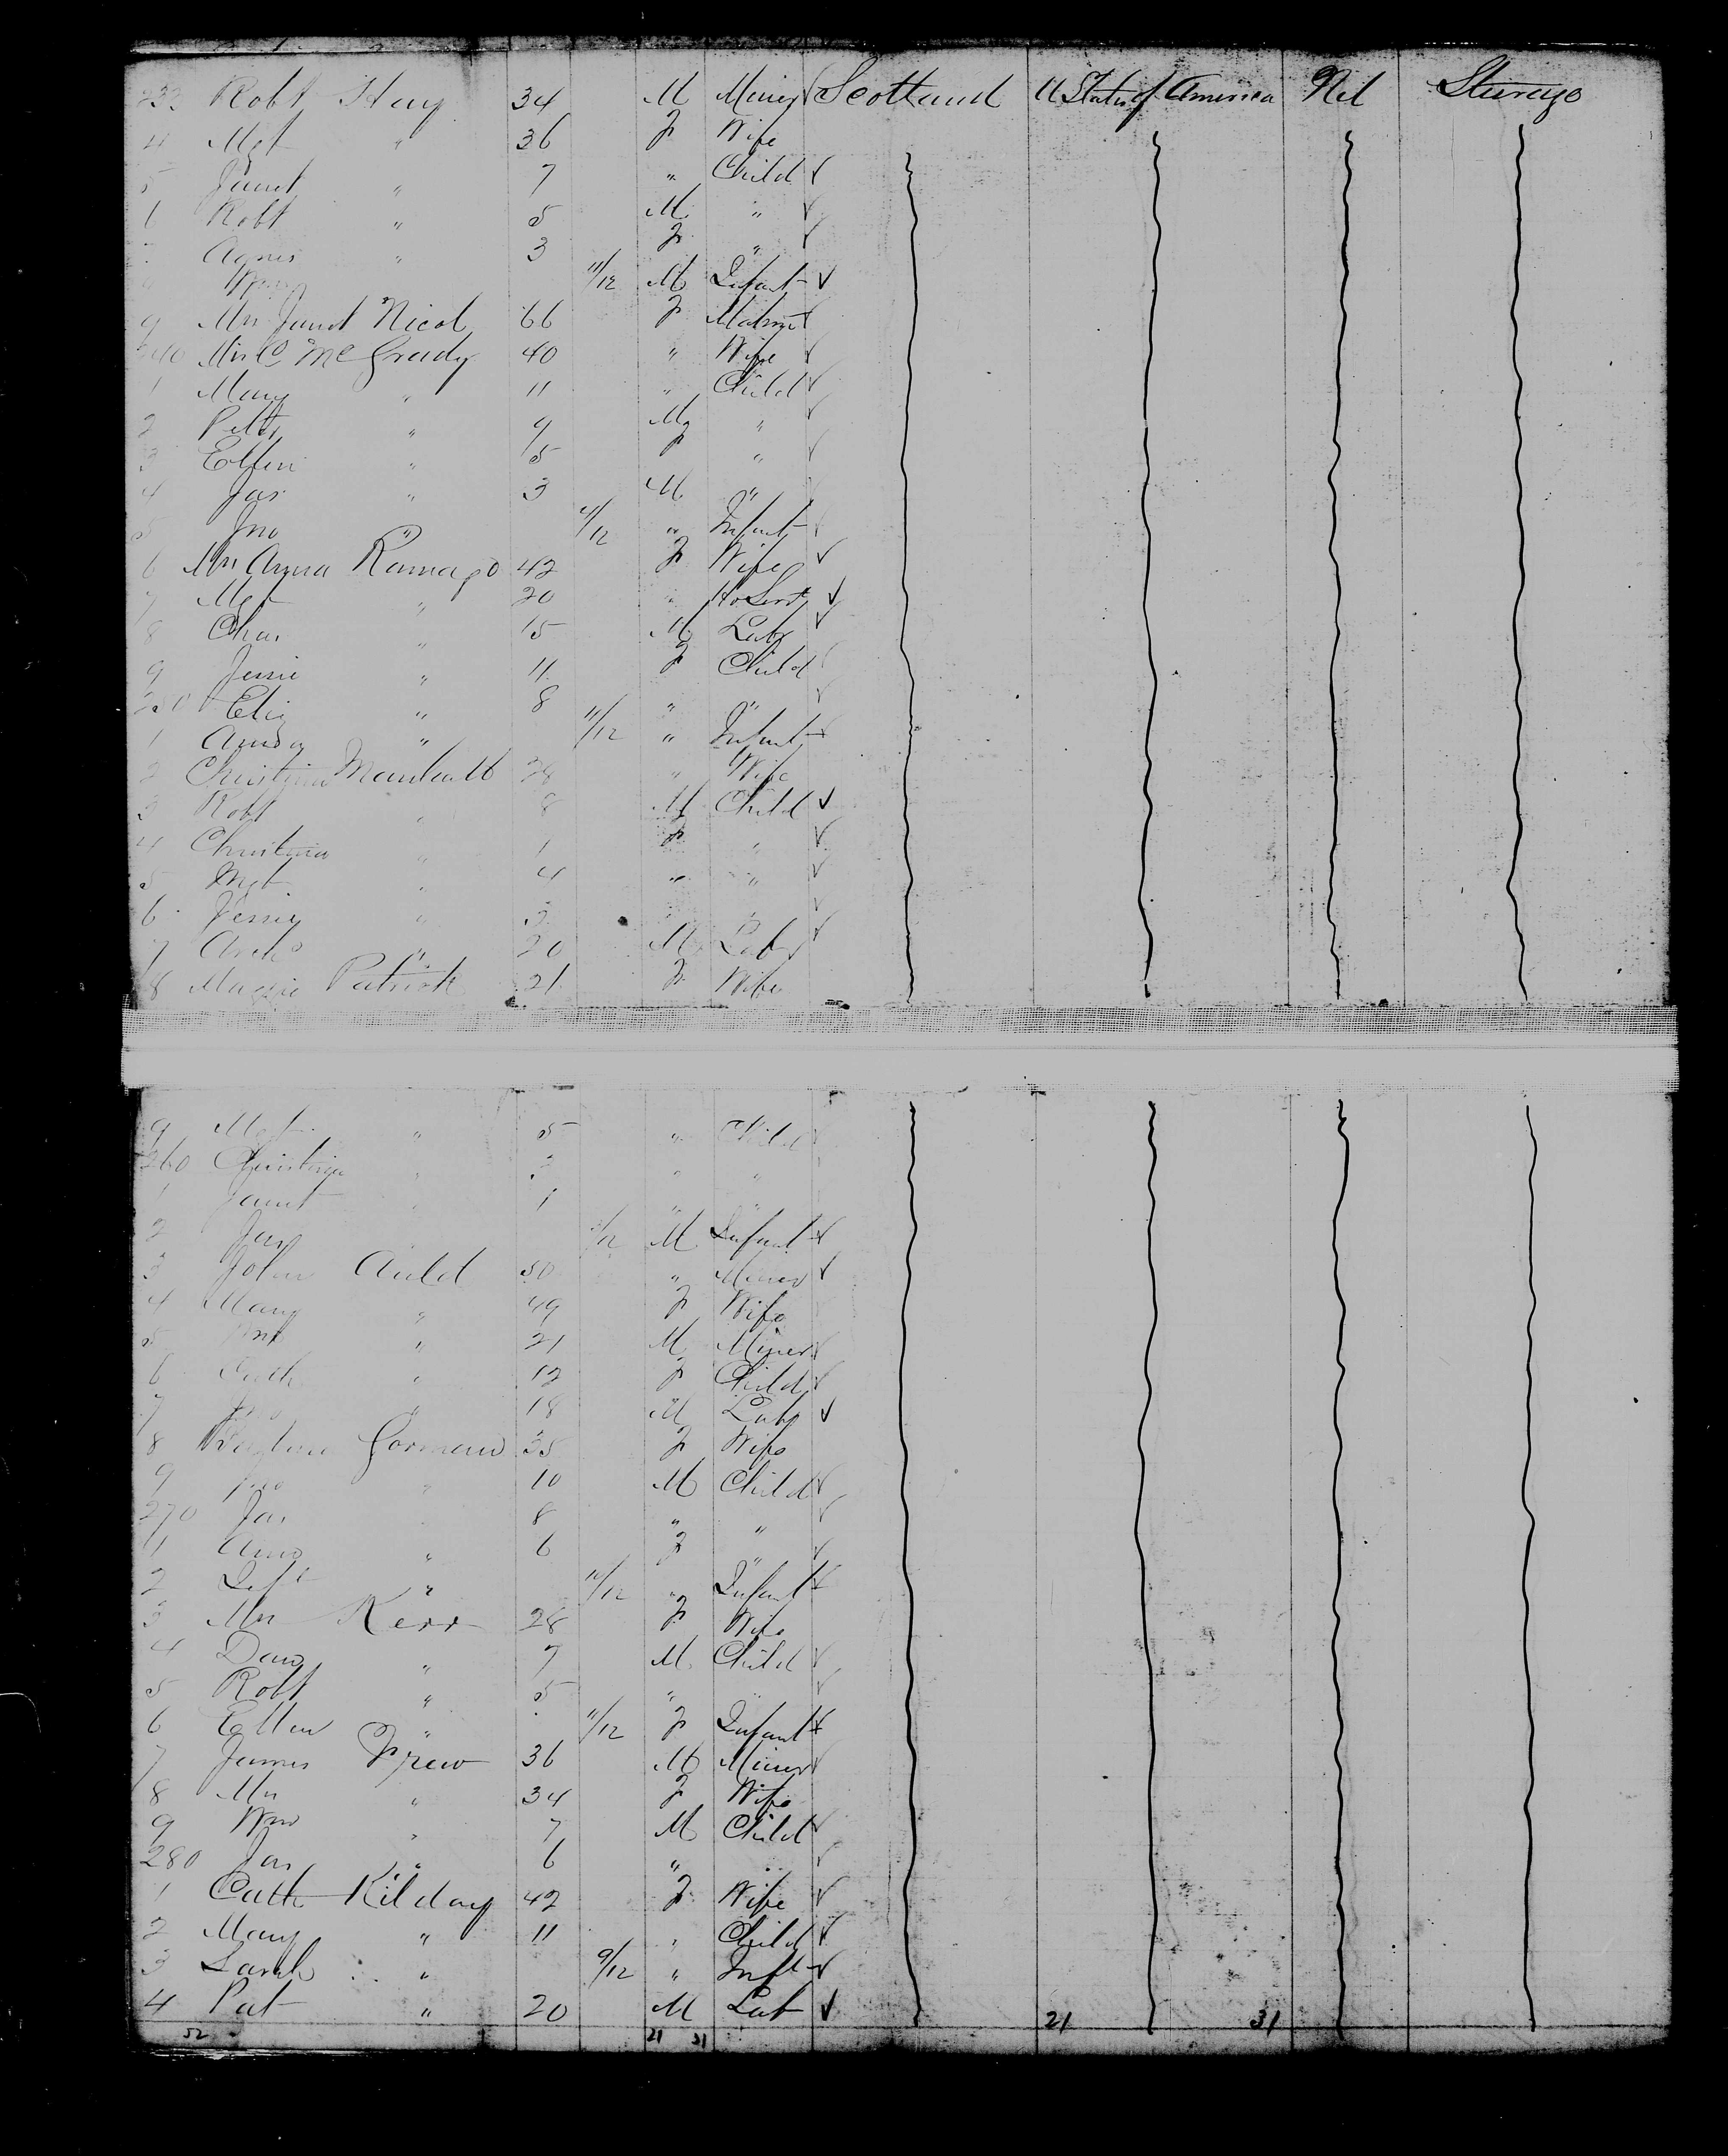 233 Robt Hay 34 M Miner Scotland U States of America Nil Steerage
4 Mgt " 36 F Wife
5 Janet " 7 " Child
6 Robt " 5 M "
7 Agnes " 3 F "
Wm 11/12 M Infant
9 Mrs Janet Nicol 66 F Matron
240 Mrs C McGrady 40 " Wife
1 Mary " 11 " Child
2 Peter " 9 M "
3 Ellen " 5 F "
4 Jas " 3 M "
5 Jno " /12 " Infant
6 Mrs Anna Ramage 42 F Wife
7 Mgt " 20 " Ho Servt
8 Chas " 15 M Labr
9 Jessie " 11 F Child
250 Eliz " 8 " "
1 " 11/12 " Infant
2 Christina 28 " Wife
3 Robt " 8 M Child
4 Christina " 1 F "
5 Mgt " 4 " "
6 Jessie " "
7 Archd " 20 M Labr
8 Maggie Patrick 21 F Wife
9 Mgt " 5 " Child
260 Christina " " "
1 Janet " 1 " "
2 Jas /12 M Infant
3 John Auld 50 " Miner
4 Mary " 49 F Wife
5 " 21 M Miner
6 Cath " 12 F Child
7 Jno " 18 M Labr
8 Gorman 35 F Wife
9 Jno " 10 M Child
270 Jas 8 " "
1 " 6 F "
2 " /12 " Infant
3 Mrs Kerr 28 F Wife
4 Dav " 7 M Child
5 Robt " 5 " "
6 Ellen " 11/12 F Infant
7 James Frew 36 M Miner
8 Mrs " 34 F Wife
9 Wm " 7 M Child
280 Jas " 6 " "
1 Cath Kilday 42 F Wife
2 Mary " 11 " Child
3 Sarah " 9/12 " Inft
4 Pat " 20 M Lab
52 21 31 21 31